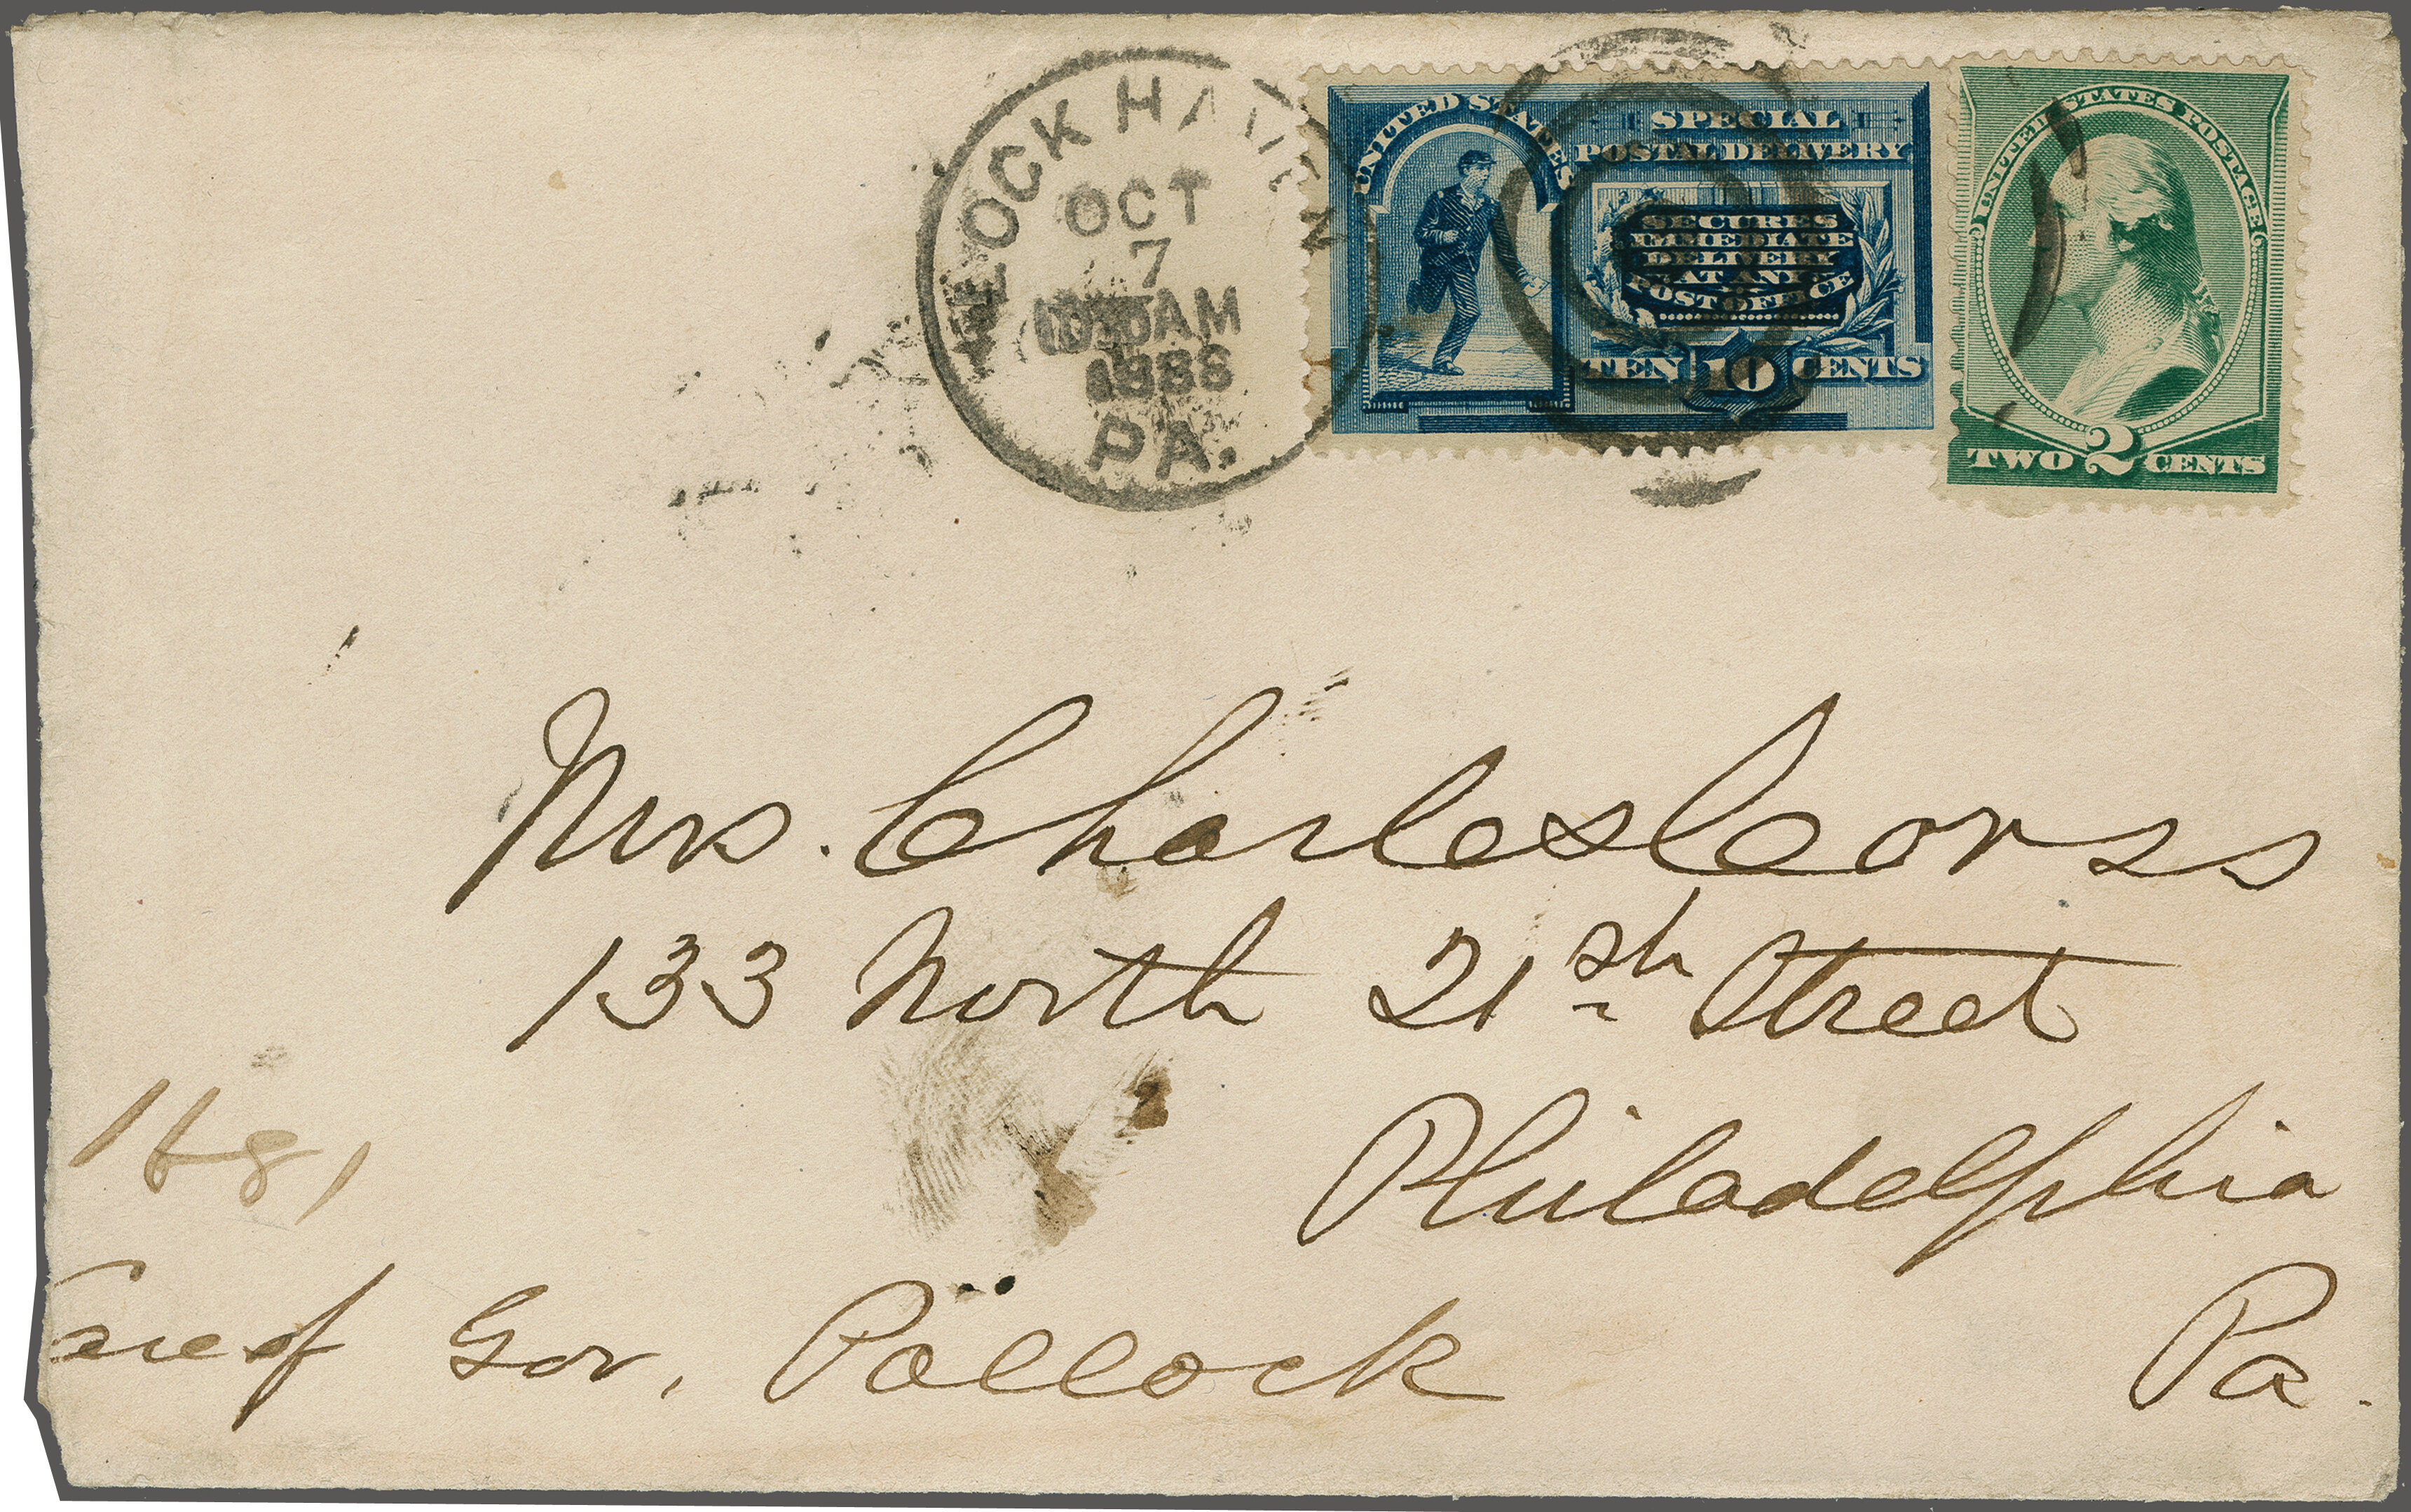 LOCK HAVEN
OCT
7
1030AM
1888
PA.
UNITED STATES
SPECIAL
POSTAL DELIVERY
SECURES
IMMEDIATE
DELIVERY
AT ANY
POST OFFICE
TEN 10 CENTS
UNITED STATES POSTAGE
TWO 2 CENTS
Mrs. Charles Corss
133 North 21st Street
Philadelphia
Pa.
1881
Care of Gov. Pollock